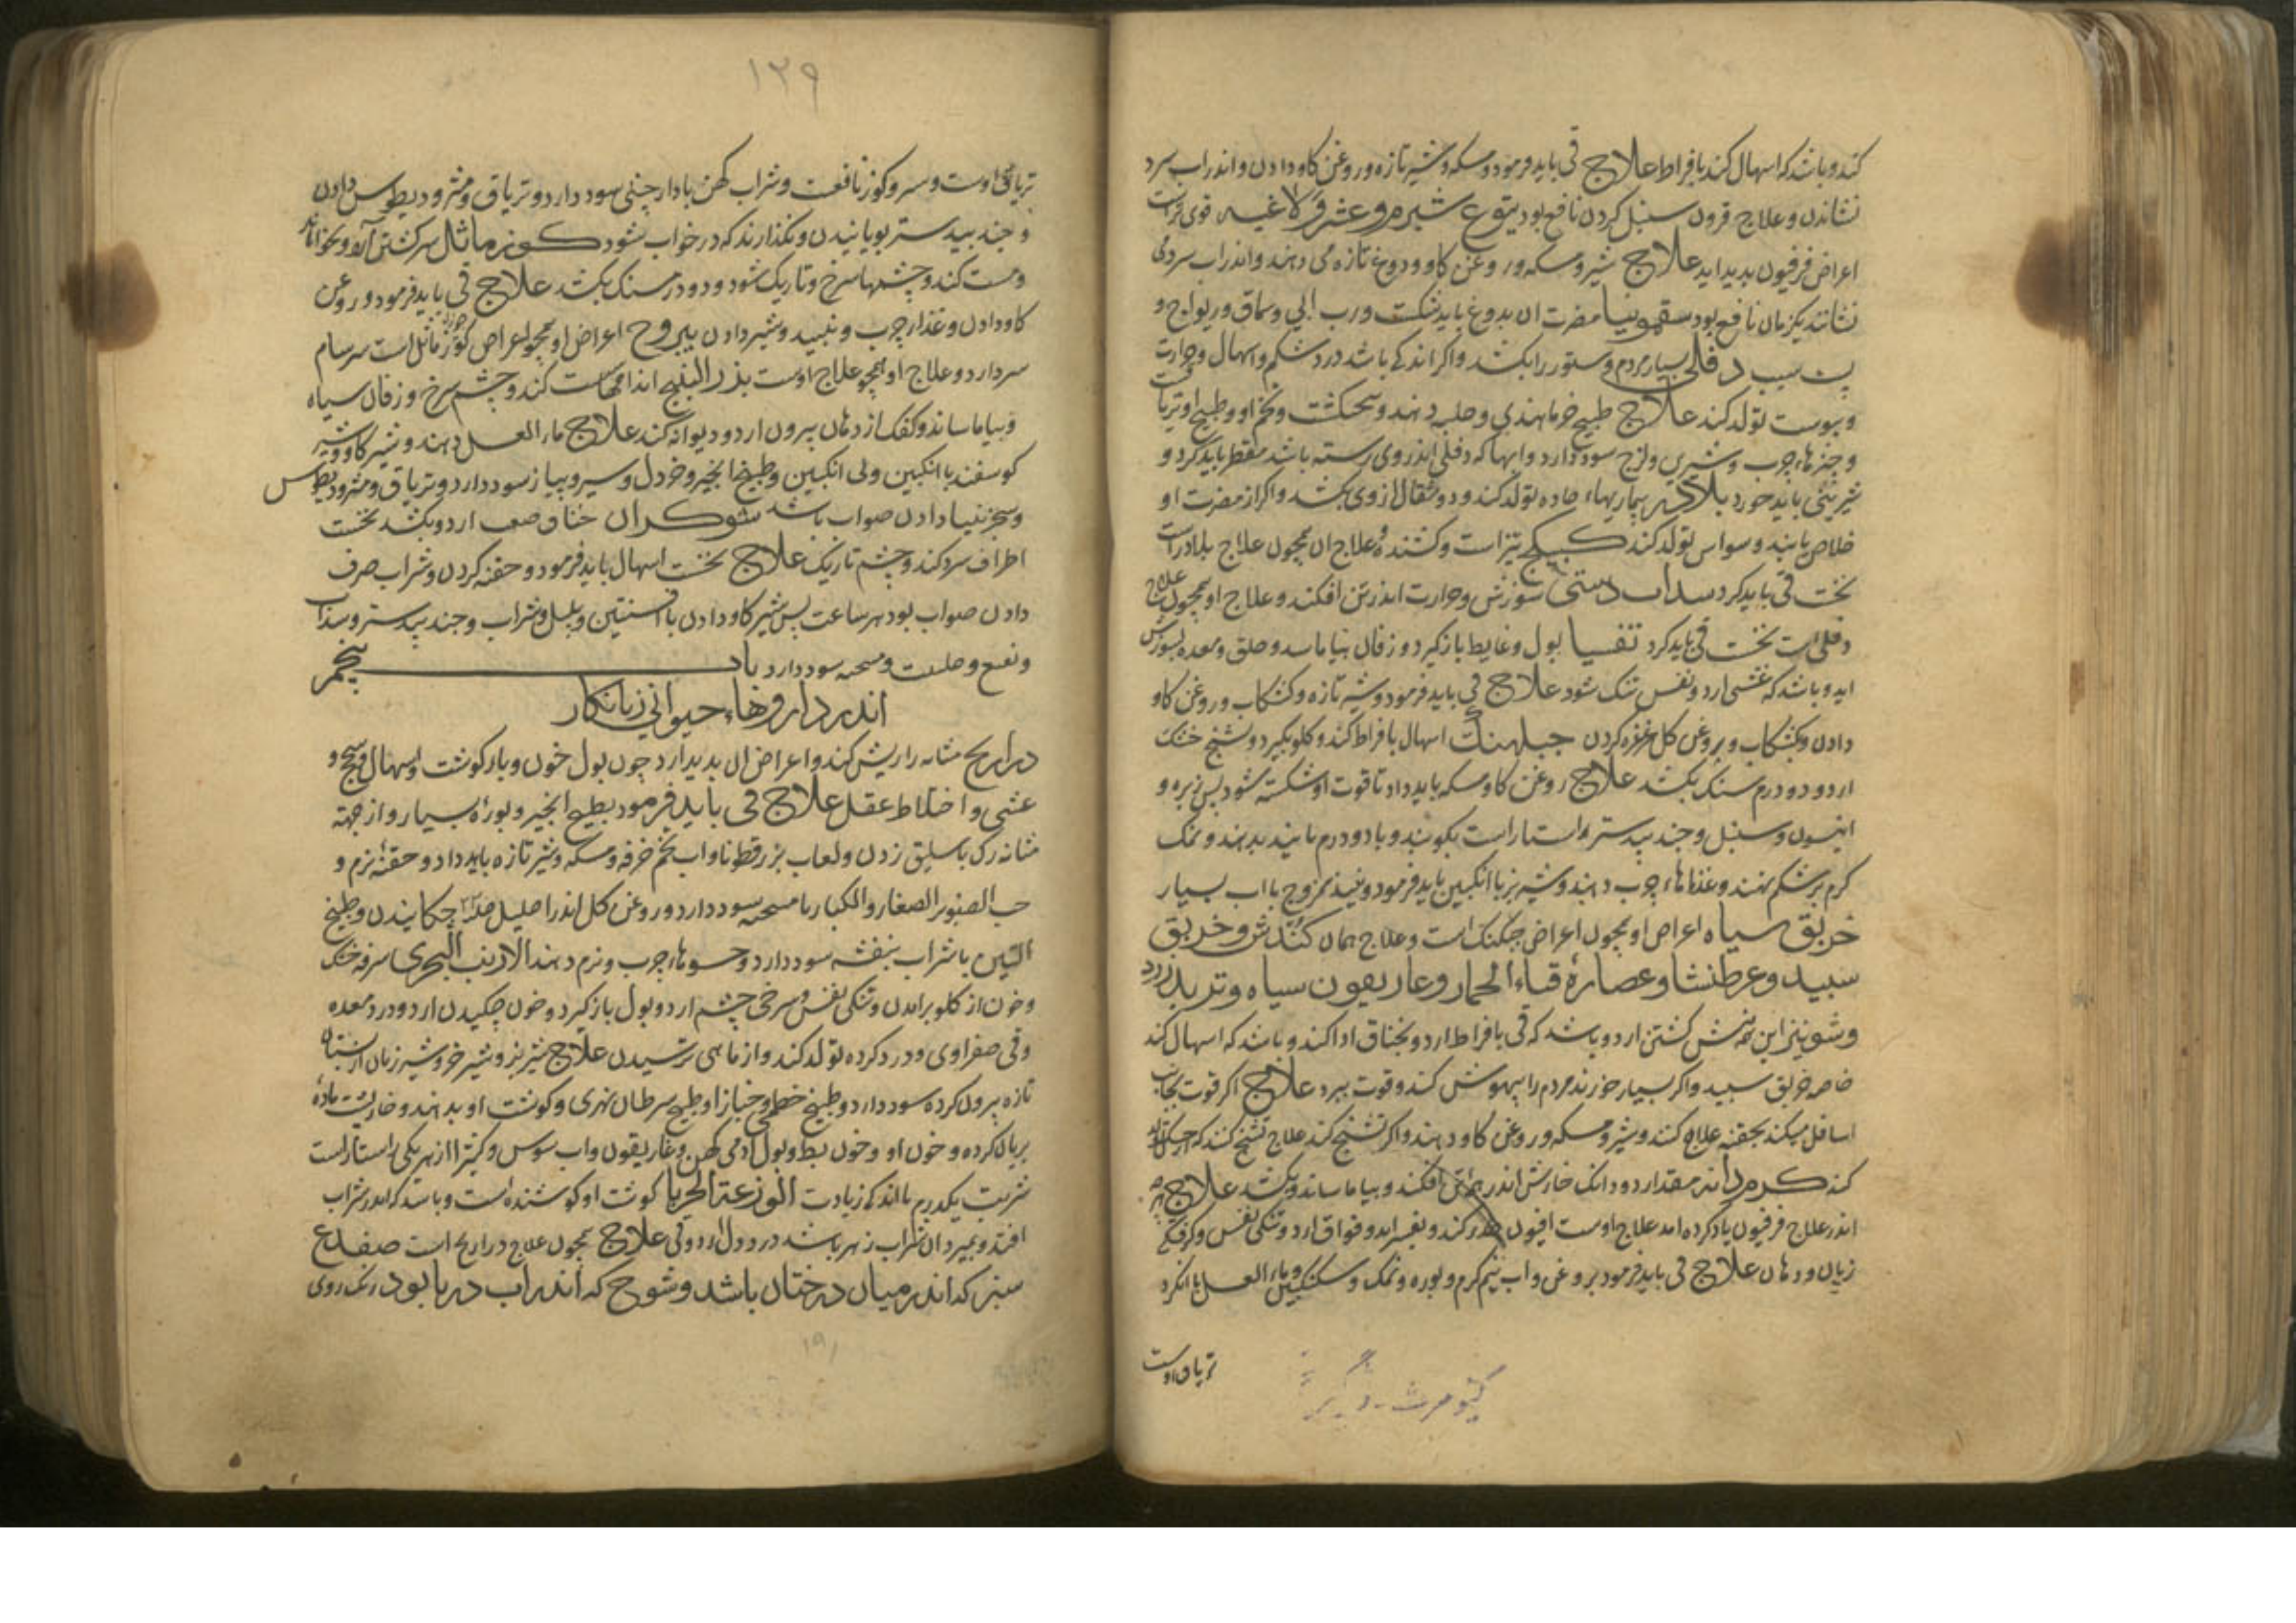 کند و باشد که اسهال کند بافراط علاج قی باید فرمود و مسکه و شیر تازه و روغن کاو دادن و اندر اب سرد
نشاندن و علاج قرون سنبل کردن نافع بود یتوع شیرم و عشر و لاغیه قوی تراست
اعراض فرفیون بدید اید علاج شیر و مسکه و روغن کاو و دوغ تازه می دهند و اندر اب سرد می
نشانند یکزمان نافع بود سقمونیا مضرت ان بدوغ باید شکست و رب ابی و سماق و ریواج و
سیب دفلی بسیار مردم و ستور را بکشد و اکر اندکی باشد درد شکم و اسهال و حرارت
و یبوست تولد کند علاج طبیخ خرما هندی و حلبه دهند و تخم او و طبیخ او تریاقست
و چیزها چرب و شیرین و لزج سود دارد و ابها که دفلی اندر وی رسته باشد مقطر باید کرد و
باید خورد بلادر بیماریها حاده تولد کند و دو مثقال از وی بکشد و اکر از مضرت او
خلاص یابند وسواس تولد کند کبیکج تیز است و کشنده و علاج ان همچون علاج بلادر است
نخست قی باید کرد سداب دشتی سوزش و حرارت اندر تن افکند و علاج او همچون علاج
دفلی است نخست قی باید کرد تفسیا بول و غایط باز گیرد و زفان بیاماسد و حلق و معده بسوزش
اید و باشد که غشی ارد و نفس تنک شود علاج قی باید فرمود و شیر تازه و کشکاب و روغن کاو
دادن و بکشکاب و بروغن کل غرغره کردن جبلهنک اسهال بافراط کند و کلو بگیرد و تشنج خشک
ارد و دو درم سنک بکشد علاج روغن کاو و مسکه باید داد تا قوت او شکسته شود پس زیره و
انیسون و سنبل و جند بیدستر راست بکوبند و با دو درم مانند بدهند و نمک
کرم بر شکم نهند و غذاها چرب دهند و شیر بز با انکبین باید فرمود و نبیذ ممزوج با اب بسیار
خربق سیاه اعراض او همچون اعراض جبلهنک است و علاج همان کندش و خربق
سبید و عرطنشا و عصارهٔ قثاء الحمار و غاریقون سیاه و تربد زرد
و شونیز این همه کشتن ارد و باشد که قی بافراط ارد و بخناق ادا کند و باشد که اسهال کند
خاصه خربق سبید و اکر بسیار خورند مردم را بیهوش کند و قوت ببرد علاج اکر قوت بجانب
اسافل میکند بحقنه علاج کنند و شیر و مسکه و روغن کاو دهند و اکر تشنج کند علاج تشنج کنند که
کند کرم دانه مقدار دو دانک خارش اندر تن افکند و بیاماساند و بکشد علاج
اندر علاج فرفیون یاد کرده امد علاج اوست افیون خدر کند و بفسراند و فواق ارد و تنکی نفس و گرفتگی
زبان و دهان علاج قی باید فرمود بروغن و اب نیم گرم و بوره و نمک و سکنکبین و ماء العسل
تریاق اوست
۱۲۹
تریاق اوست و سیر و کوز نافعست و شراب کهن با دارچینی سود دارد و تریاق و مثرودیطوس دادن
و جند بیدستر بویانیدن و نکذارند که در خواب شود کوز ماثل سر کشتن آرد و بخواباند
و مست کند و چشمها سرخ و تاریک شود و دو درمسنک بکشد علاج قی باید فرمود و روغن
کاو دادن و غذا چرب و نبیذ و شیر دادن یبروح اعراض او همچو اعراض کوز ماثل است سرسام
سرد ارد و علاج او همچو علاج اوست بذر البنج اندامها سست کند و چشم سرخ و زفان سیاه
و بیاماساند و کفک از دهان بیرون ارد و دیوانه کند علاج ماء العسل دهند و شیر کاو و شیر
کوسفند با انکبین و بی انکبین و طبیخ انجیر و خردل و سیر و پیاز سود دارد و تریاق و مثرودیطوس
و سجزینیا دادن صواب باشد شوکران خناق صعب ارد و بکشد نخست
اطراف سرد کند و چشم تاریک علاج نخست اسهال باید فرمود و حقنه کردن و شراب صرف
دادن صواب بود هر ساعت پس شیر کاو دادن با افسنتین و پلپل و شراب و جند بیدستر و سداب
و نعنع و حلتیت و میعه سود دارد باب پنجم
اندر داروها حیوانی زیانکار
ذراریح مثانه را ریش کند و اعراض ان بدید ارد چون بول خون و پاره کوشت و اسهال و سحج و
غشی و اختلاط عقل علاج قی باید فرمود بطبیخ انجیر و بوره بسیار و از جهته
مثانه رک باسلیق زدن و لعاب بزرقطونا و اب تخم خرفه و مسکه و شیر تازه باید داد و حقنهٔ نرم و
حب الصنوبر الصغار و الکبار با میبخته سود دارد و روغن کل اندر احلیل چکانیدن و طبیخ
التین با شراب بنفشه سود دارد و حسوها چرب و نرم دهند الارنب البحری سرفه خشک
و خون از کلو برامدن و تنکی نفس و سرخی چشم ارد و بول باز گیرد و خون چکیدن ارد و درد معده
و قی صفراوی و درد کرده تولد کند و از ماهی ترسیدن علاج شیر بز و شیر خر و شیر زنان از پستان
تازه بیرون کرده سود دارد و طبیخ خطمی و خبازا و طبیخ سرطان نهری و کوشت او بدهند و خارپشت مادهٔ
بریان کرده و خون او و خون بط و بول ادمی کهن و غاریقون و اب سوس و کثیرا از هر یکی راستاراست
شربت یکدرم با اندکی زیادت الوزغة الحربا کوشت او کوشنده است و باشد که اندر شراب
افتد و بمیرد ان شراب زهر باشد درد دل ارد و قی علاج همچون علاج ذراریح است ضفدع
سبز که اندر میان درختان باشد و شوح که اندر اب دریا بود رنک روی
۱۹۱